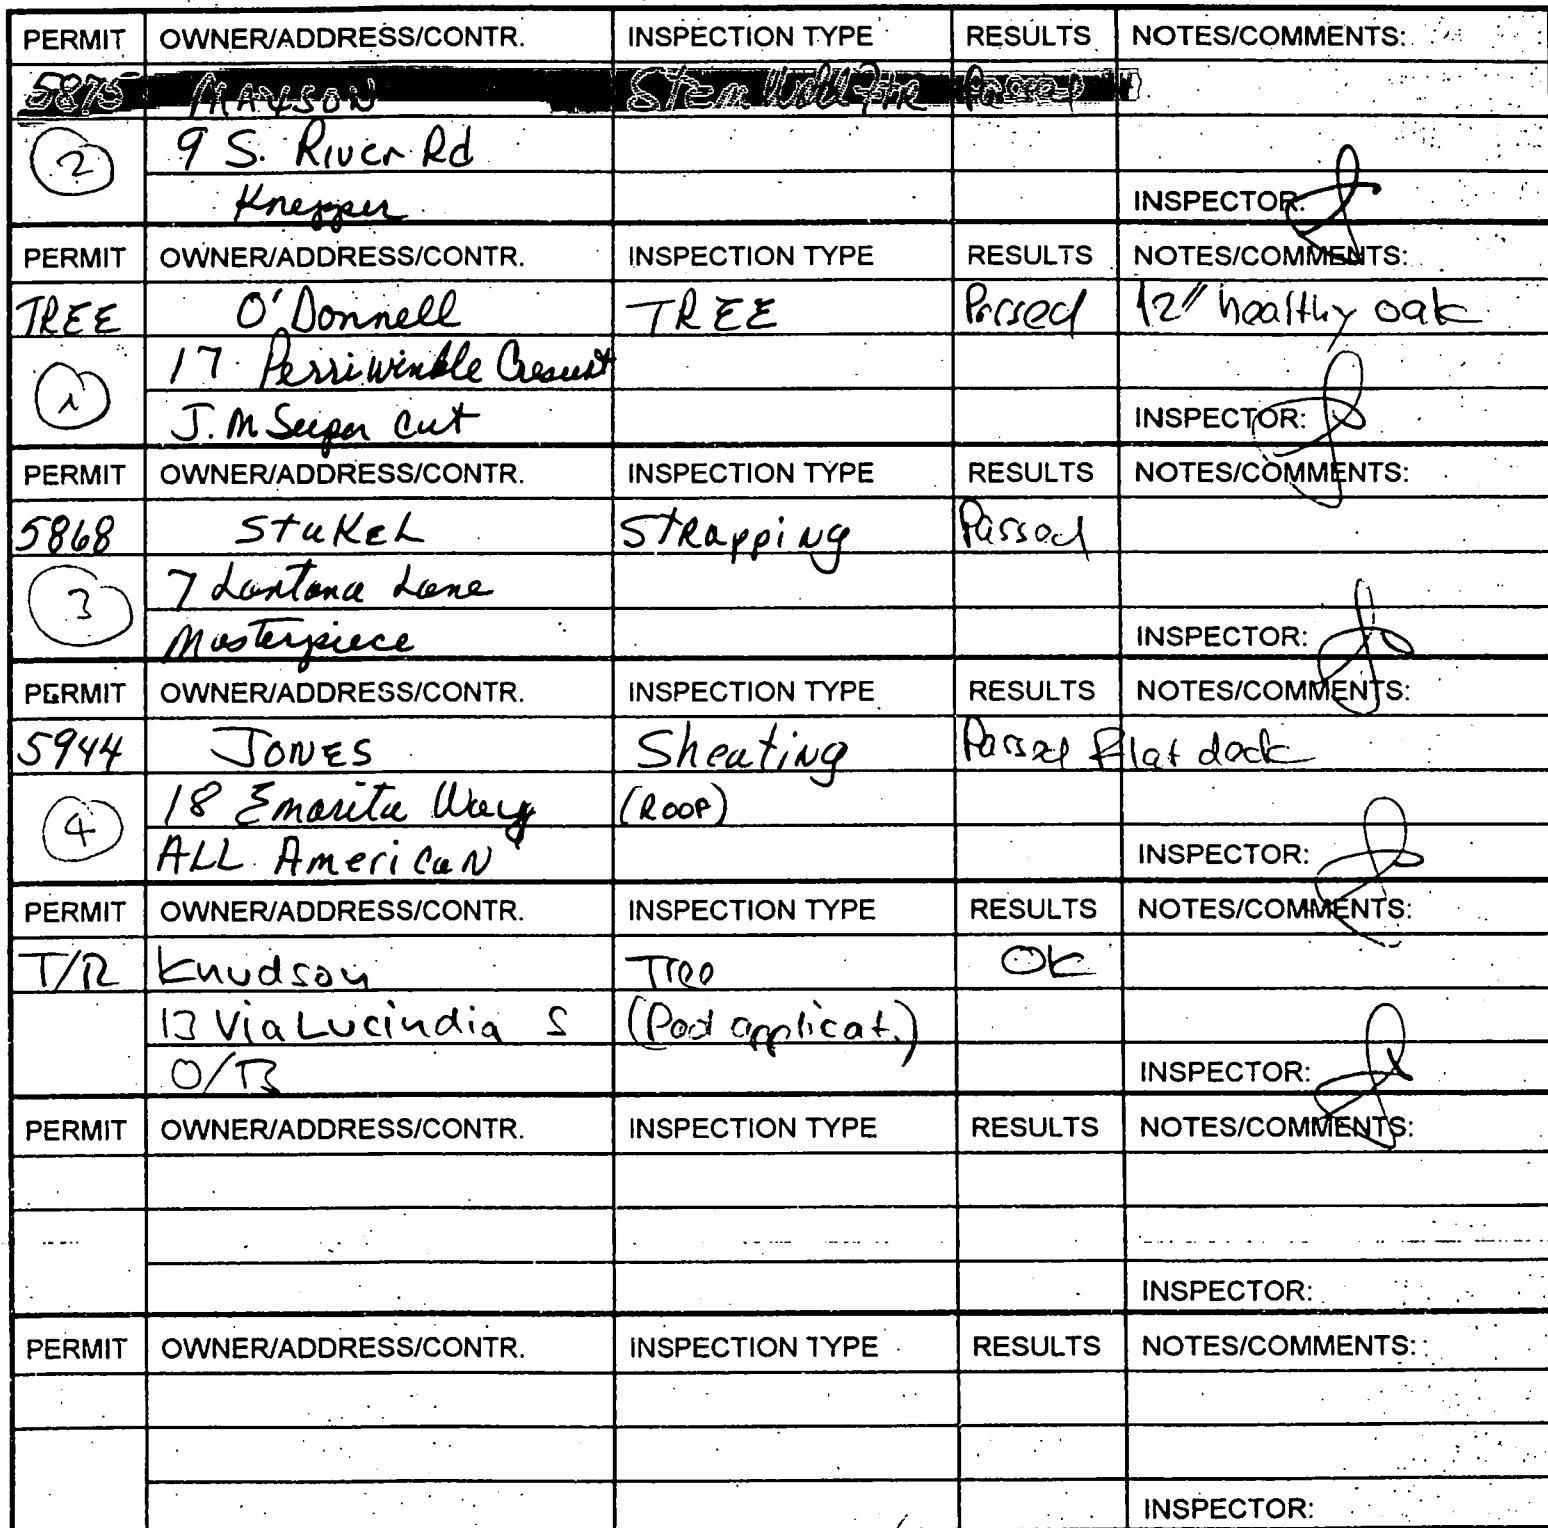 PERMIT OWNER/ADDRESS/CONTR. INSPECTION TYPE RESULTS NOTES/COMMENTS:
5875 MAYSON Stem Wall Passed
2 9 S. River Rd
Knepper INSPECTOR:
PERMIT OWNER/ADDRESS/CONTR. INSPECTION TYPE RESULTS NOTES/COMMENTS:
TREE O'Donnell TREE Passed 12" healthy oak
1 17 Perriwinkle Cresent
J.M Super Cut INSPECTOR:
PERMIT OWNER/ADDRESS/CONTR. INSPECTION TYPE RESULTS NOTES/COMMENTS:
5868 StuKeL STRapping Passed
3 7 Lantana Lane
Masterpiece INSPECTOR:
PERMIT OWNER/ADDRESS/CONTR. INSPECTION TYPE RESULTS NOTES/COMMENTS:
5944 JONES Sheating Passed flat deck
4 18 Emarita Way (ROOF)
ALL AmericaN INSPECTOR:
PERMIT OWNER/ADDRESS/CONTR. INSPECTION TYPE RESULTS NOTES/COMMENTS:
T/R Knudson Tree OK
13 Via Lucindia S (Pool applicat.)
O/B INSPECTOR:
PERMIT OWNER/ADDRESS/CONTR. INSPECTION TYPE RESULTS NOTES/COMMENTS:
INSPECTOR:
PERMIT OWNER/ADDRESS/CONTR. INSPECTION TYPE RESULTS NOTES/COMMENTS:
INSPECTOR: